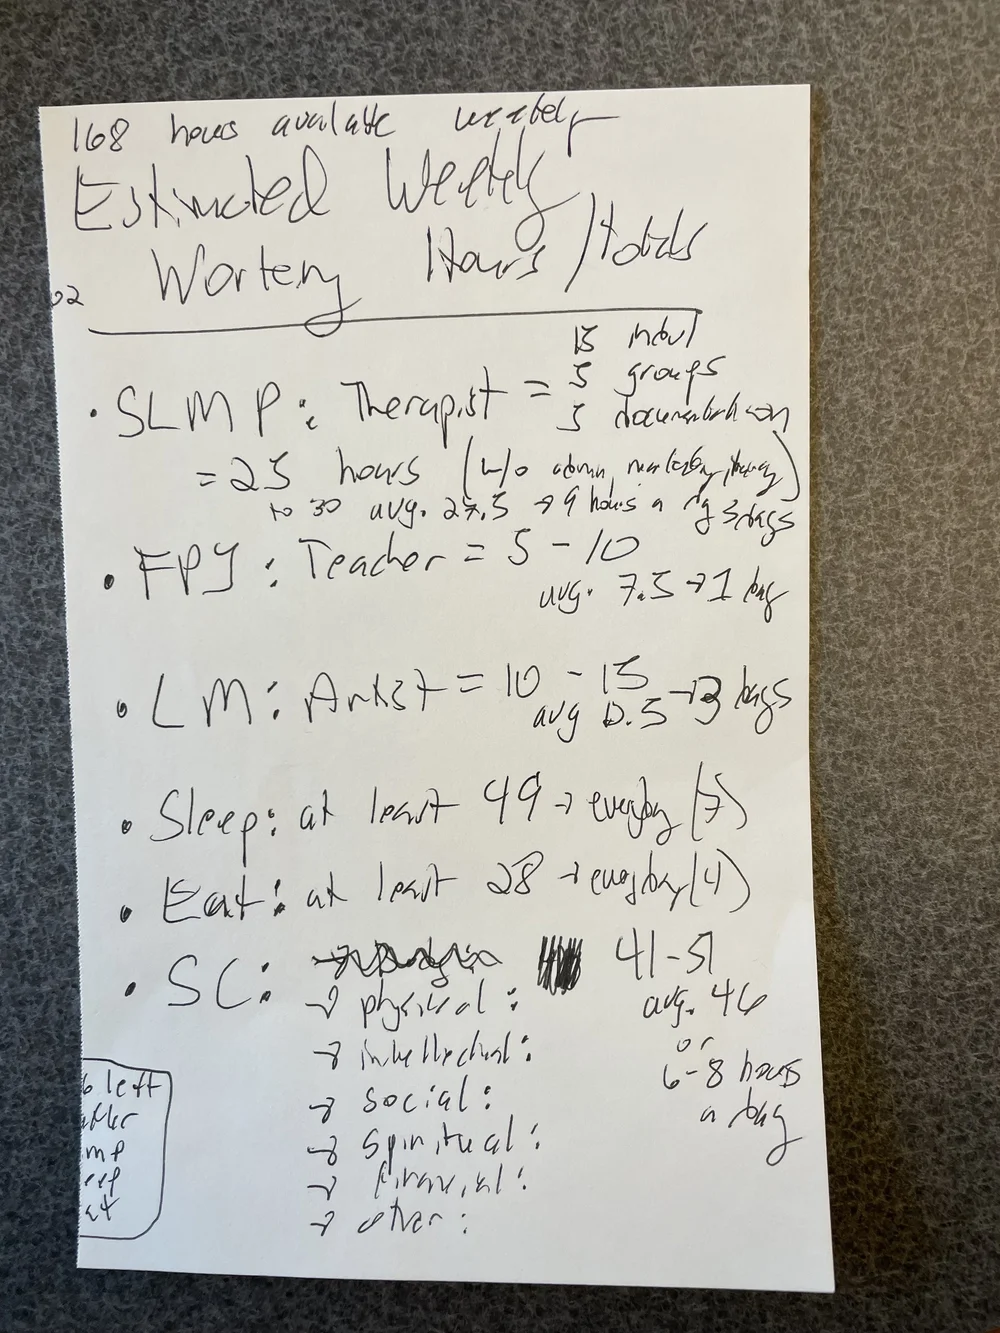 168 hours available weekly
Estimated Weekly
Working Hours / totals
02
15 indvl
5 groups
• SLMP: Therapist = 5 documentation
= 25 hours (w/o admin, marketing,
to 30 avg. 27.5 → 9 hours a day 3 days
• FPY: Teacher = 5 - 10
avg. 7.5 → 1 day
• LM: Artist = 10 - 15
avg 12.5 → 3 days
• Sleep: at least 49 → everyday (7)
• Eat: at least 28 → everyday (4)
• SC: 41-51
→ physical: avg. 46
→ intellectual: or
→ social: 6-8 hours
→ spiritual: a day
→ financial:
→ other:
6 left
after
mp
eep
at